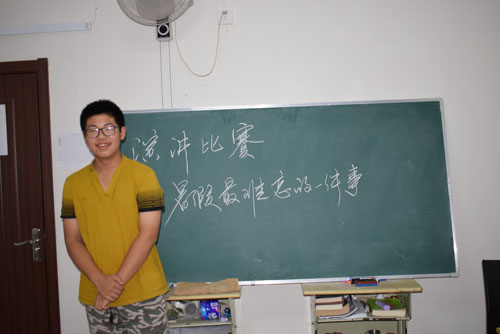 演讲比赛
暑假最难忘的一件事